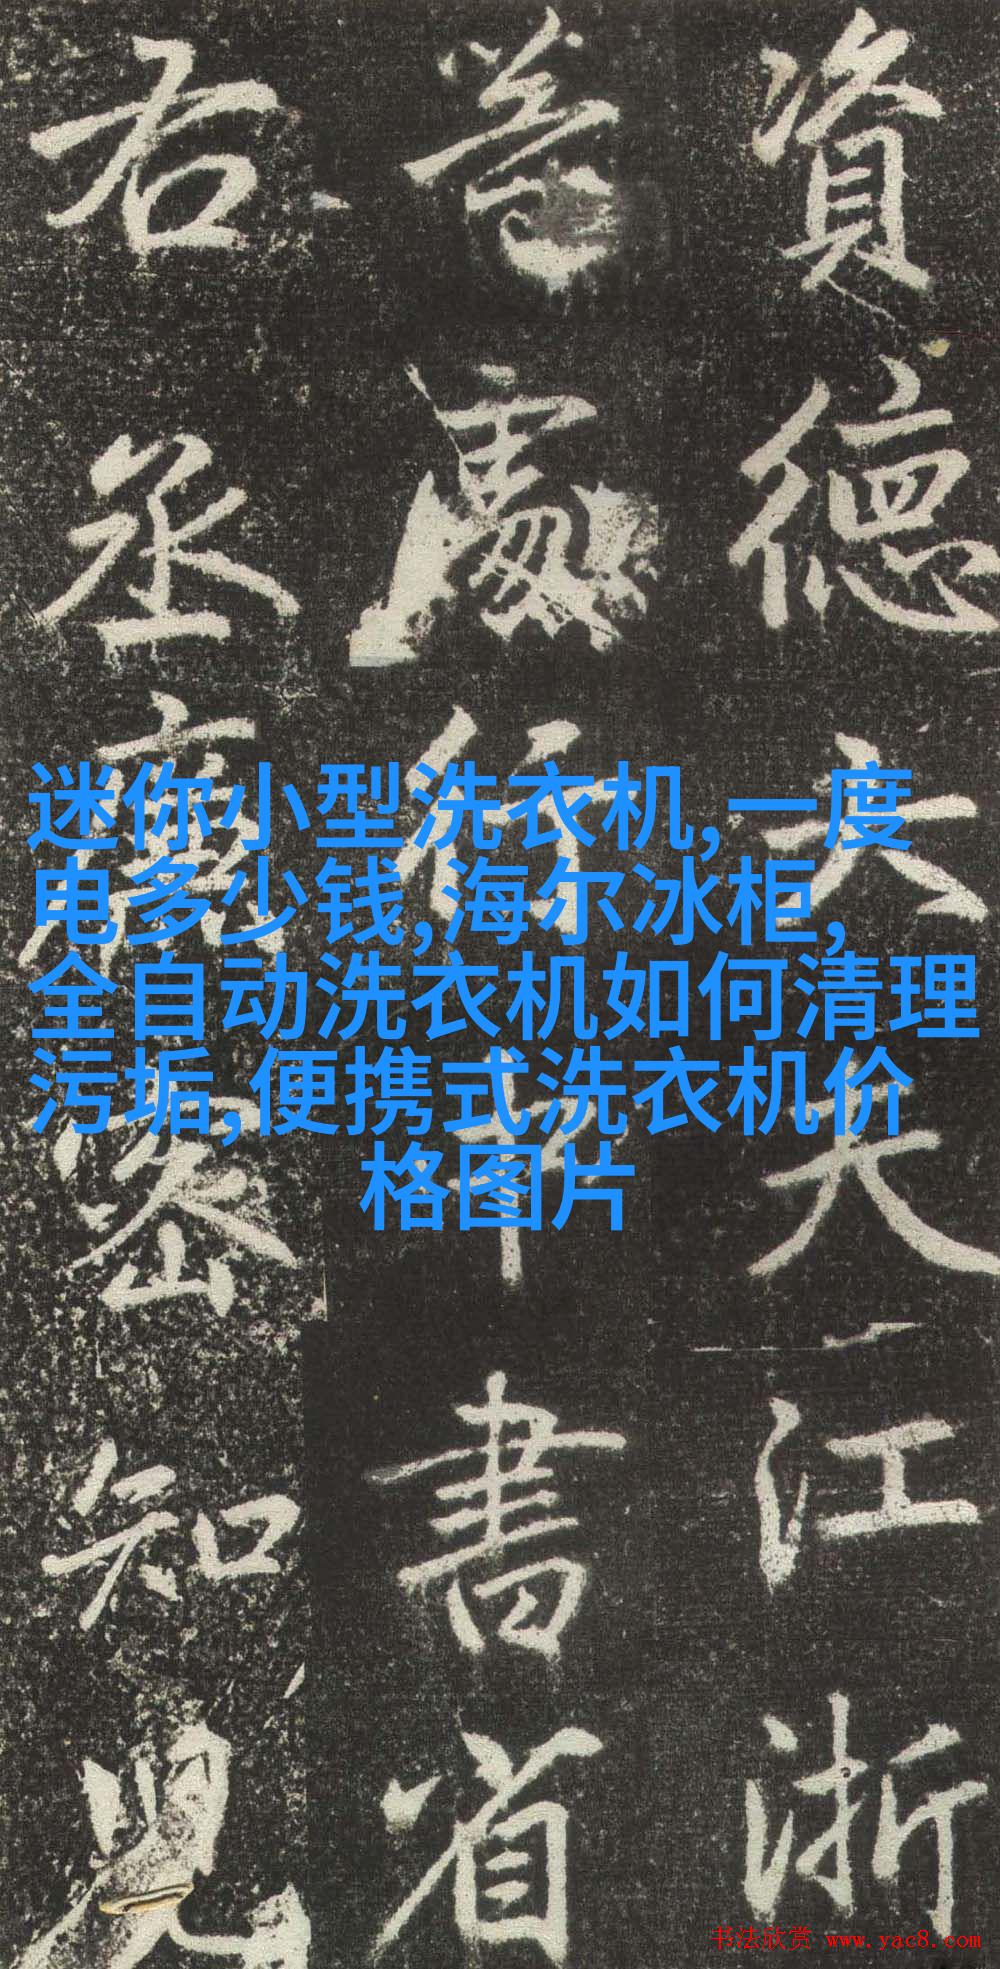 資德大夫江浙
等處行中書省
右丞廉密知兒
迷你小型洗衣机,一度
电多少钱,海尔冰柜,
全自动洗衣机如何清理
污垢,便携式洗衣机价
格图片
书法欣赏 www.yac8.com